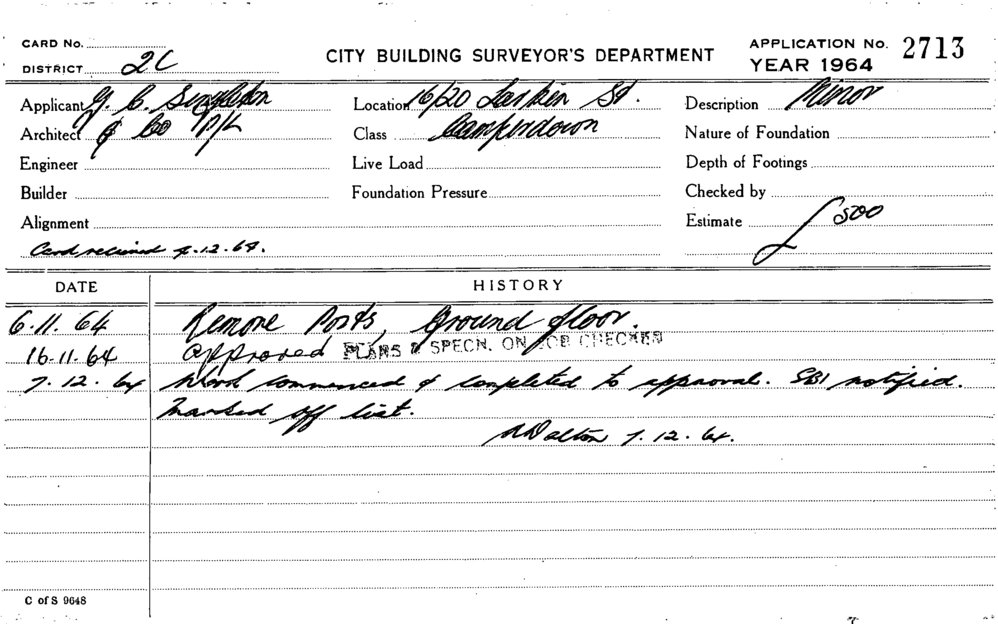 CARD No.
DISTRICT 2C
CITY BUILDING SURVEYOR'S DEPARTMENT
APPLICATION No. 2713
YEAR 1964
Applicant G. C. Singleton
Location 16/20 Larkin St.
Description Minor
Architect & Co P/L
Class Camperdown
Nature of Foundation
Engineer
Live Load
Depth of Footings
Builder
Foundation Pressure
Checked by
Alignment
Estimate £500
Card received 4.12.64.
DATE HISTORY
6.11.64 Remove Posts, Ground floor.
16.11.64 Approved PLANS & SPECN. ON JOB CHECKED
7.12.64 Work commenced & completed to approval. SBI notified.
Marked off list.
Walton 7.12.64.
C of S 9648